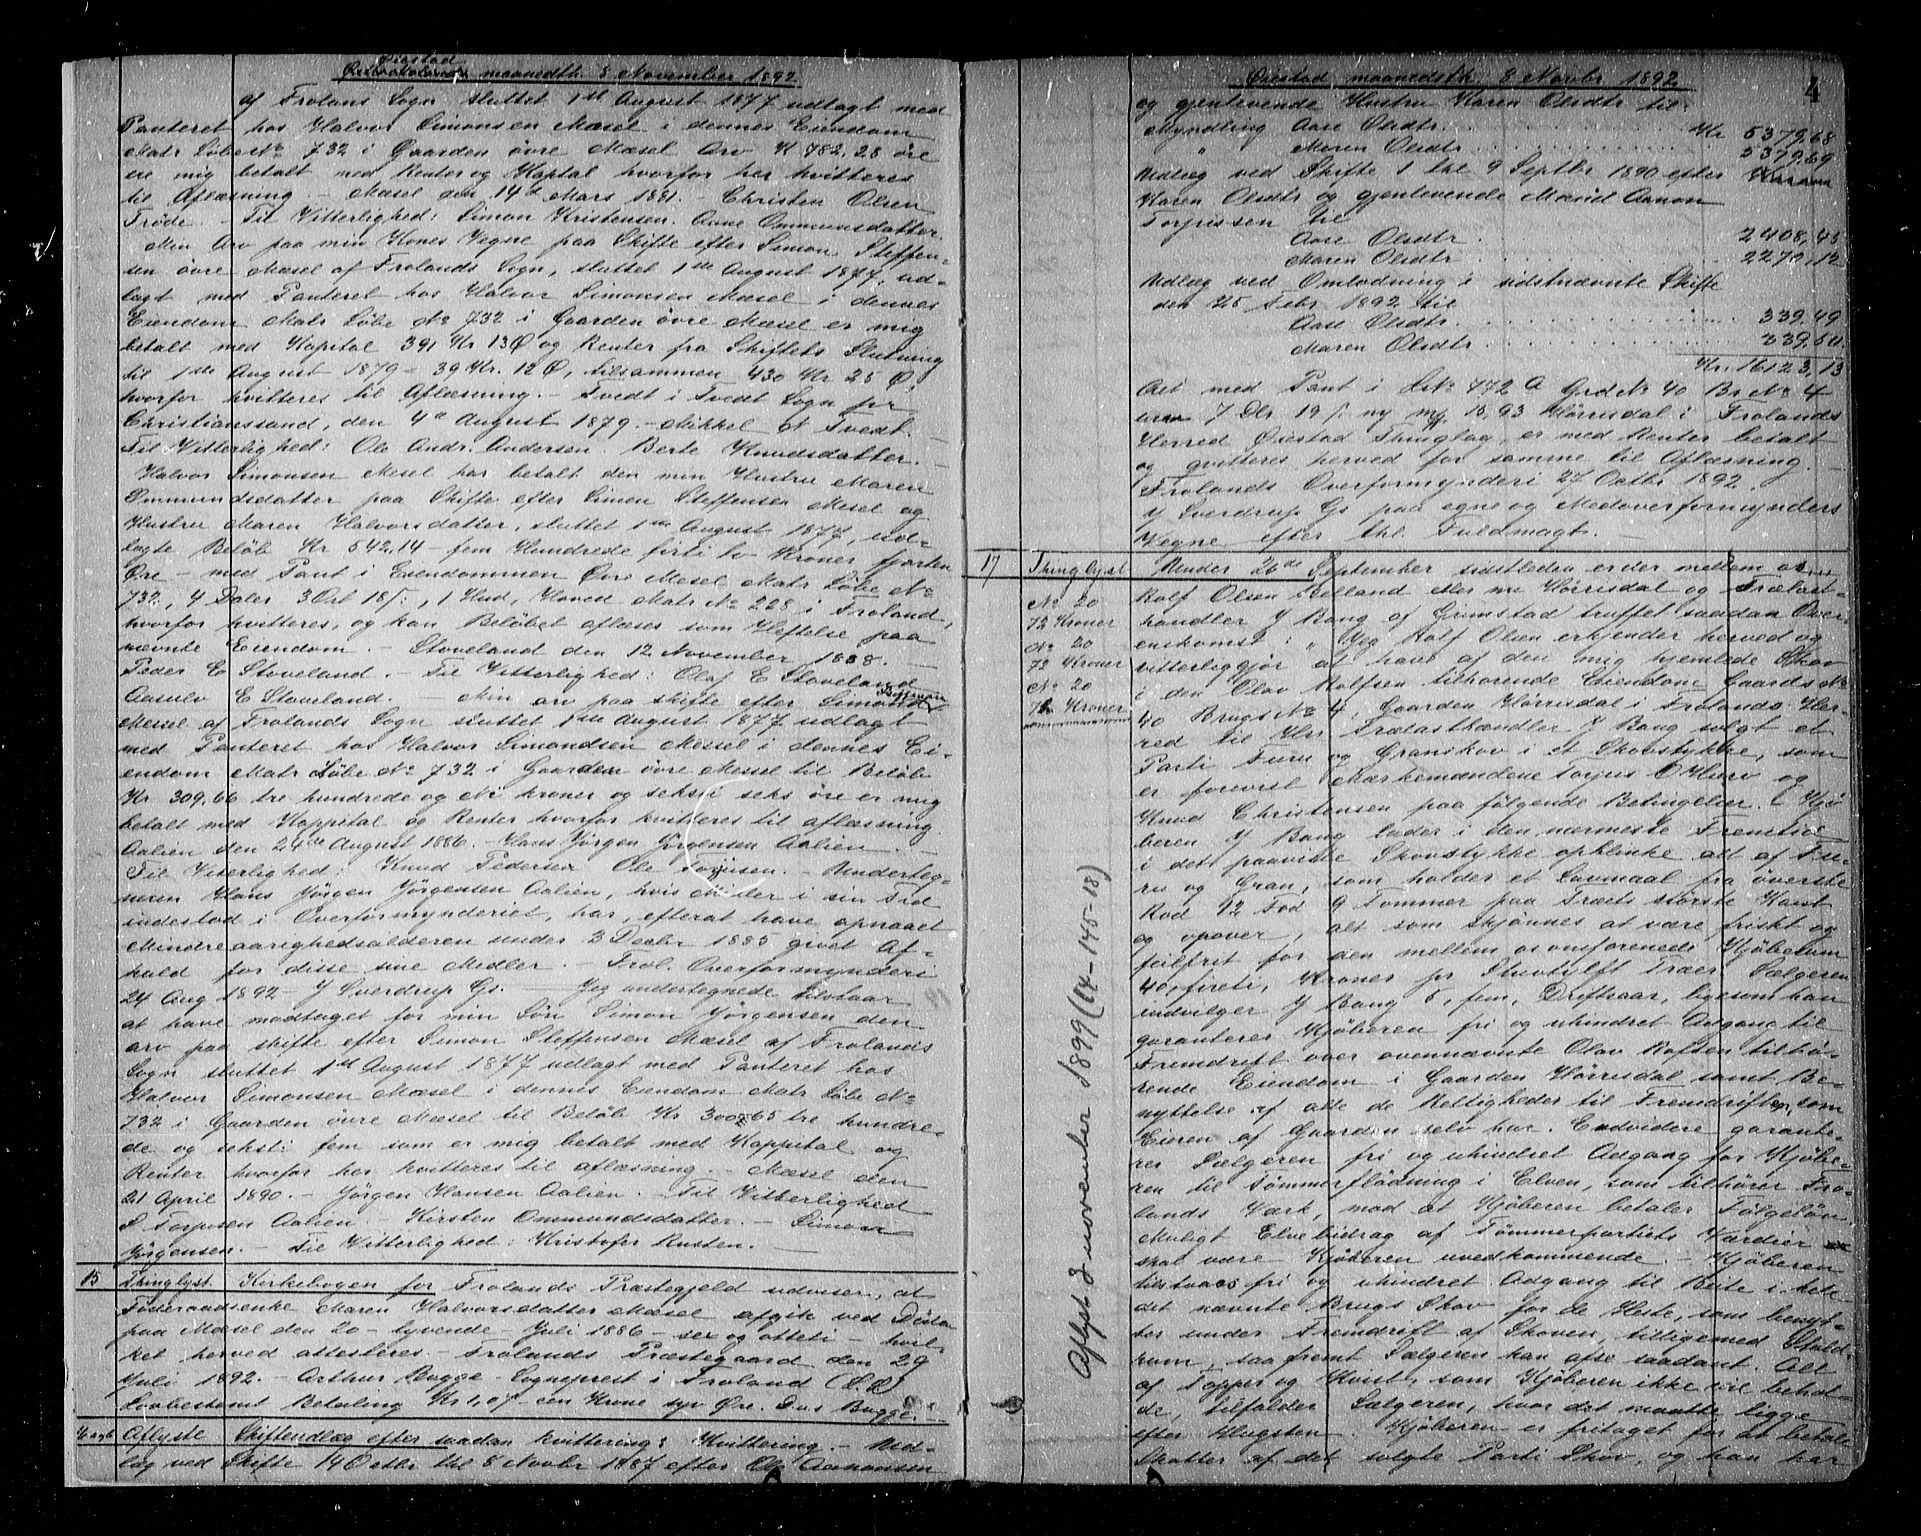 Øiestad
maanedsth. 3 November 1892.
af Frolans Sogn sluttet 1st August 1877 udlagt med
Panteret hos Halvor Simonsen Mæsel i dennes Eiendom
Matr Løbe No 732 i Gaarden øvre Mæsel Arv K 782,28 øre
ere mig betalt med Renter og Kaptal hvorfor her kvitteres
til Aflæsning - Mæsel den 14de Mars 1881. - Christen Olsen
Trøde. - Til Vitterlighed: Simon Kristensen. Aane Ommunsdatter.
Min Arv paa min Kones Vegne paa Skifte efter Simon Steffen-
sen øvre Mæsel af Frolands Sogn, sluttet 1ste August 1877, ud-
lagt med Panteret hos Halvor Simonsen Mæsel i dennes
Eiendom Matr Løbe No 732 i Gaarden øvre Mæsel er mig
betalt med Kapital 391 Kr 13 Ø og Renter fra Skiftets Slutning
til 1ste August 1879 - 39 Kr. 12 Ø, tilsammen 430 Kr 25 Ø,
hvorfor kvitteres til Aflæsning. - Tvedt i Tvedt Sogn pr
Christianssand, den 4de August 1879. - Mikkel N Tvedt. -
Til Vitterlighed: Ole Andr. Andersen. Berte Knudsdatter. -
Halvor Simonsen Mesel har betalt den min Hustru Maren
Ommundsdatter paa Skifte efter Simon Steffensen Mesel og
Hustru Maren Halvorsdatter, sluttet 1ste August 1877, ud-
lagte Beløb Kr 542,14 - fem Hundrede firti to Kroner fjorten
Øre - med Pant i Eiendommen Øvre Mesel Matr Løbe No
732, 4 Daler 3 Ort 18 /:, 1 Hud, Hoved Matr No 228 i Froland,
hvorfor kvitteres, og kan Beløbet aflæses som Heftelse paa
nævnte Eiendom. - Stoveland den 12 November 1888. -
Peder E Stoveland. - Til Vitterlighed: Olaf E Stoveland
Aasulv E Stoveland. - Min arv paa skifte efter Simon
Messel af Frolands Sogn sluttet 1ste August 1877 udlagt
med Panteret hos Halvor Simondsen Messel i dennes Ei-
endom Matr Løbe No 732 i Gaarden øvre Messel til Beløb
Kr 309,66 tre hundrede og Ni kroner og seksti seks øre er mig
betalt med Kappital og Renter hvorfor kvitteres til aflæsning.
Aalien den 24de August 1886. - Hans Jørgen Jørgensen Aalien. -
Til Viterlighed: Knud Pedersen Ole - Underteg-
neren Hans Jørgen Jørgensen Aalien, hvis Midler i sin Tid
indestod i Overformynderiet, har, efterat have opnaaet
Mindreaarighedsalderen under 3 Decbr 1885 givet Af-
kald for disse sine Midler. Frol. Overformynderi
24 Aug 1892 - J Sverdrup Gs. - Jeg undertegnede tilstaar
at have modtaget for min Søn Simon Jørgensen den
arv paa skifte efter Simon Steffensen Mæsel af Frolands
Sogn sluttet 1st August 1877 udlagt med Panteret hos
Halvor Simonsen Mæsel i dennes Eiendom Matr Løbe No
732 i Gaarden øvre Mæsel til Beløb Kr 300,65 tre hundre-
de og seksti fem som er mig betalt med Kappital og
Renter hvorfor her kvitteres til aflæsning. - Mæsel den
21 April 1890. - Jørgen Hansen Aalien. - Til Vitterlighed
S Torjusen Aalien. - Kirsten Ommundsdatter. - Simon
Jørgensen. - Til Vitterlighed: Kristofer Rusten. -
15 Thinglyst. Kirkebogen for Frolands Præstegjeld udviser, at
Føderaadsenke Maren Halvorsdatter Mæsel afgik ved Døden
paa Mæsel den 20 - tyvende - Juli 1886 - sex og otteti - hvil-
ket herved attesteres. - Frolands Præstegaard den 29
Juli 1892. - Arthur Bugge - Sogneprest i Froland (L.S.)
Lovbestemt Betaling Kr 1,07 - een Krone syv Øre. D.u.s Bugge. -
Aflyste Skifteudlæg efter saadan kvittering: Kvittering. - Ud-
læg ved Skifte 14 Octbr thl 8 Novbr 1887 efter Ole Aanonsen
Øiestad maanedsth. 3 Novbr 1892. 4
og gjenlevende Hustru Karen Olsdtr til
Myndling Aase Olsdtr. Kr 5379,68
" Maren Olsdtr 5379,69
Udlæg ved Skifte 1 thl 9 Septbr 1890 efter
Karen Olsdtr og gjenlevende Mand Aanon
Torjussen til
Aase Olsdtr. 2408,43
Maren Olsdtr 2270,12
Udlæg ved Omlodning i sidstnævnte Skifte
den 25 Febr 1892 til
Aase Olsdtr. 339,49
Maren Olsdtr 339,50
Kr. 16123,13
Alt med Pant i LNo 772 A Grd No 40 Br No 4
7 Dlr 19 /: ny 15,93 Hørrisdal i Frolands
Herred, Øiestad Thinglag, er med Renter betalt
og qvitteres herved for samme til Aflæsning. -
Frolands Overformynderi 27 Octbr 1892.
J Sverdrup Gs paa egne og Medoverformynders
Vegne efter thl. Fuldmagt. -
17 Thinglyst Under 26de September sidstleden er der mellem os
No 20 Rolf Olsen Helland eller nu Hørrisdal og Trælast-
72 Kroner handler J Bang af Grimstad truffet saadan Over-
No 20 enskomst: "Jeg Rolf Olsen erkjender herved og
72 Kroner vitterliggjør at have af den mig hjemlede Skov
No 20 i den Olav Rolfsen tilhørende Eiendom Gaards No
72 Kroner 40 Brugs No 4, Gaarden Hørrisdal i Frolands Her-
red til Hr. Trælasthandler J Bang solgt et
Parti Furu og Granskov i et Skovstykke, som
er forevist Mærkemændene Torjus O Hurv og
Knud Christensen paa følgende Betingelser. Kjø-
beren J Bang lader i den nærmeste Fremtid
i det paaviste Skovstykke opblinke alt af Fu-
ru og Gran, som holder et Lavmaal fra øverste
Rod 12 Fod 9 Tommer paa Træets største Kant
og opover, alt som skjønnes at være friskt og
feilfrit for den mellem os omforenede Kjøbesum
40, firti, Kroner pr Stuvtylft Træer. Sælgeren
indvilger J Bang 5, fem, Driftsaar, ligesom han
garanteres Kjøberen fri og uhindret Adgang til
Fremdrift over ovennævnte Olav Rolfsen tilhø-
rende Eiendom i Gaarden Hørrisdal samt Be-
nyttelse af alle de Rettigheder til Fremdriften, som
Eieren af Gaarden selv har. Endvidere garante-
res Sælgeren fri og uhindret Adgang for Kjøbe-
ren til Tømmerflødning i Elven, som tilhører Fro-
lands Værk, mod at Kjøberen betaler Følgeløn.
Muligt Elvebidrag af Tømmerpartiets Værdier
skal være Kjøberen uvedkommende. - Kjøberen
tilstaaes fri og uhindret Adgang til Beite i hele
det nævnte Brugs Skov for de Heste, som benyt-
tes under Fremdrift af Skoven, tilligemed Stald-
rum, saafremt Sælgeren kan afse saadant. Alt
af Topper og Kvist, som Kjøberen ikke vil behol-
de, tilfalder Sælgeren, hvor det maatte ligge
efter Hugsten. Kjøberen er fritaget for at betale
Skatter af det solgte Parti Skov, og han har
Aflyst 3 november 1899 (14-145-18)